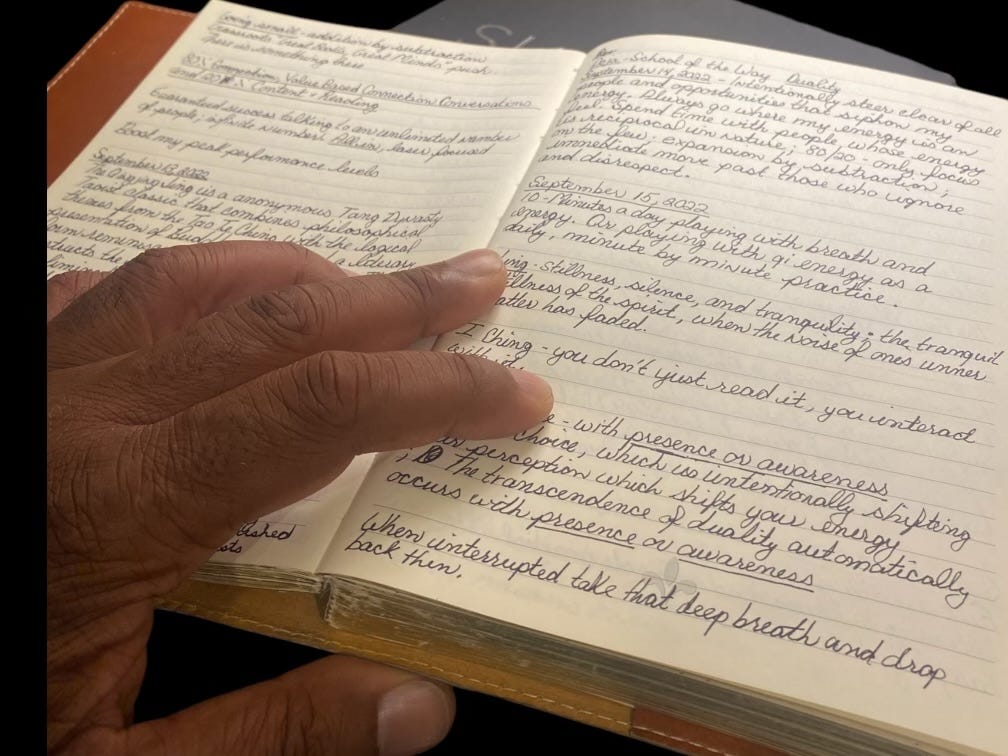 Going small - addition by subtraction
Grassroots, Great Books, Great Minds" push
There is something here
80% Connection, Value Based Connection Conversations
and 20% Content + Reading
Guaranteed success talking to an unlimited number
of people; infinite number. All-in, laser focused
Boost my peak performance levels
September 13, 2022
The Qing jing Jing is a anonymous Tang Dynasty
Taoist classic that combines philosophical
themes from the Tao Te Ching with the logical
presentation of
a literary
form reminis
ished
School of the Way Duality
September 14, 2022 - Intentionally steer clear of all
people and opportunities that syphon my
energy. Always go where my energy is an
Spend time with people whose energy
is reciprocal in nature; 80/20 - only focus
on the few; expansion by subtraction;
immediate move past those who ignore
and disrespect.
September 15, 2022
10-Minutes a day playing with breath and
energy. Or playing with qi energy as a
daily, minute by minute practice.
- Stillness, silence, and tranquility: the tranquil
stillness of the spirit, when the noise of ones inner
has faded.
I Ching - you don't just read it, you interact
with it.
- with presence or awareness
choice, which is intentionally shifting
perception which shifts your energy
; The transcendence of duality automatically
occurs with presence or awareness
When interrupted take that deep breath and drop
back then.